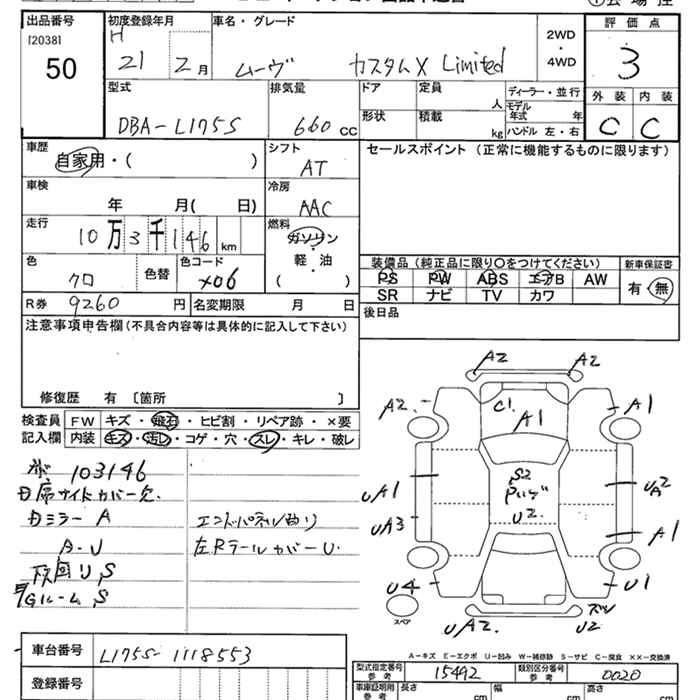 出品番号
[2038]
50
初度登録年月
H
21 2月
車名・グレード
ムーヴ カスタムX Limited
2WD
・
4WD
評価点
3
型式
DBA-L175S
排気量
660 CC
ドア
定員
人
形状
積載
kg
ディーラー・並行
モデル年式 年
ハンドル 左・右
外装 内装
C C
車歴
自家用・( )
シフト
AT
セールスポイント (正常に機能するものに限ります)
車検
年 月( 日)
冷房
AAC
走行
10万3千146 km
燃料
ガソリン
軽・油
( )
色
クロ
色替
色コード
X06
装備品 (純正品に限り○をつけてください)
新車保証書
PS PW ABS エアB AW
SR ナビ TV カワ
有・無
R券 9260 円
名変期限 月 日
後日品
注意事項申告欄(不具合内容等は具体的に記入して下さい)
修復歴 有 〔箇所 〕
検査員 FW キズ・飛石・ヒビ割・リペア跡・×要
記入欄 内装 キズ・汚レ・コゲ・穴・スレ・キレ・破レ
103146
席サイドカバー欠.
ミラー A
A・U
エンドパネル曲り
左Rテールカバー U.
U,S
Gルーム S
A2 A2
A2 C1 A1 A1
UA1 S2 UA2
U2
UA3 A1
U4 U1
スペア
UA2 U2
A-キズ E-エクボ U-凹み W-補修跡 S-サビ C-腐食 ××-交換済
車台番号 L175S-1118553
登録番号
型式指定番号 参考 15492
類別区分番号 参考 0020
車庫証明用 参考
長さ cm
幅 cm
高さ cm